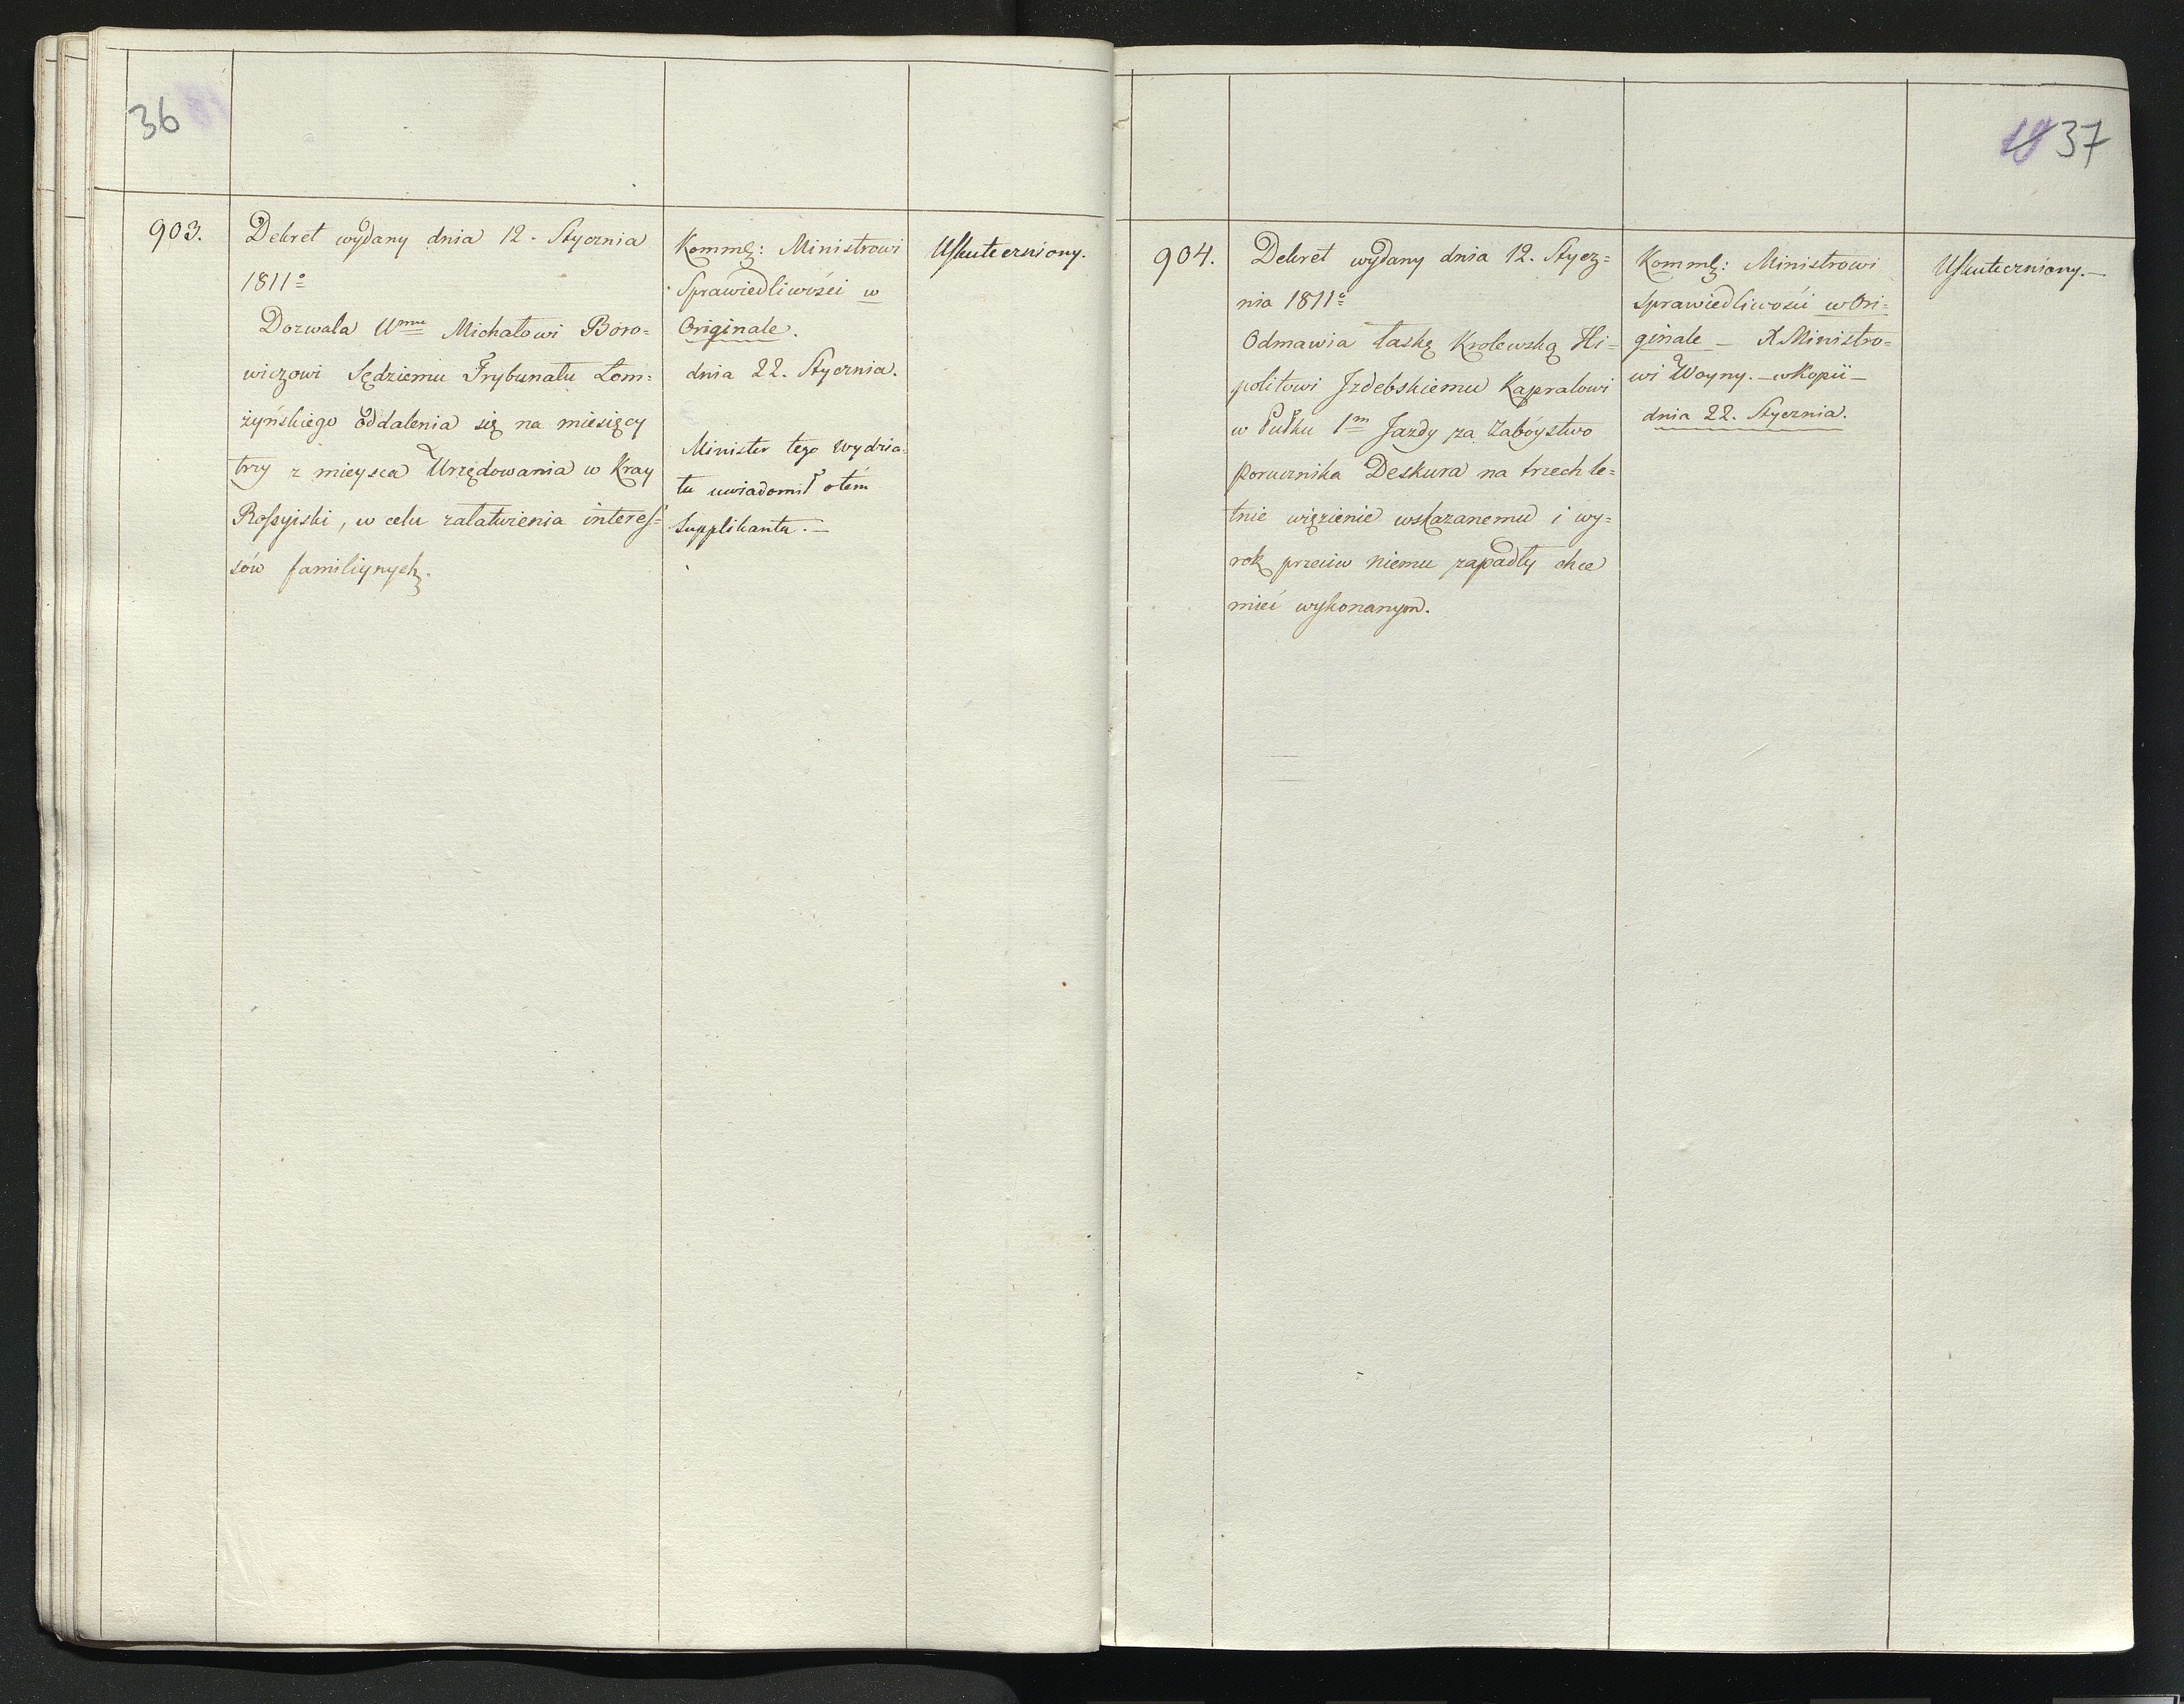 36
903.
Dekret wydany dnia 12. Stycznia
1811º
Dozwala Umu Michałowi Boro=
wiczowi Sędziemu Trybunału Łom=
żyńskiego oddalenia się na miesięcy
trzy z mieysca Urzędowania w Kray
Rossyiski, w celu załatwienia interes=
sów familiynych.
Kommk: Ministrowi
Sprawiedliwości w
Originale.
dnia 22. Stycznia.
Minister tego wydzia=
łu uwiadomił o tém
Supplikanta.—
Uskuteczniony.
37
904.
Dekret wydany dnia 12. Stycz=
nia 1811º
Odmawia łaskę Krolewską Hi=
politowi Jzdebskiemu Kapralowi
w Pułku 1m Jazdy za Zabóystwo
Porucznika Deskura na trzech le=
tnie więzienie wskazanemu i wy=
rok przeciw niemu zapadły chce
mieć wykonanym.
Kommk: Ministrowi
Sprawiedliwości w Ori=
ginale — X Ministro=
wi Woyny. — w Kopii —
dnia 22. Stycznia.
Uskuteczniony.—